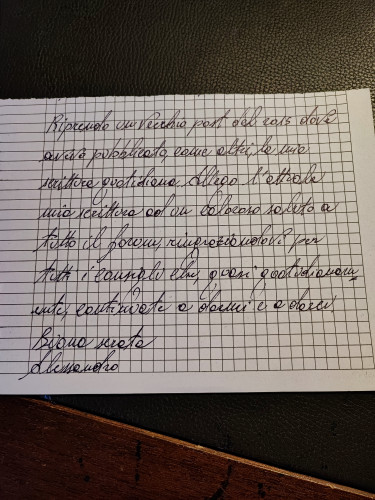 Riprendo un vecchio post del 2015 dove
avevo pubblicato, come altri, la mia
scrittura quotidiana. Allego l'attuale
mia scrittura ed un caloroso saluto a
tutto il forum, ringraziandovi per
tutti i consigli che, quasi quotidianam
ente, continuate a darmi e a darci.
Buona serata
Alessandro